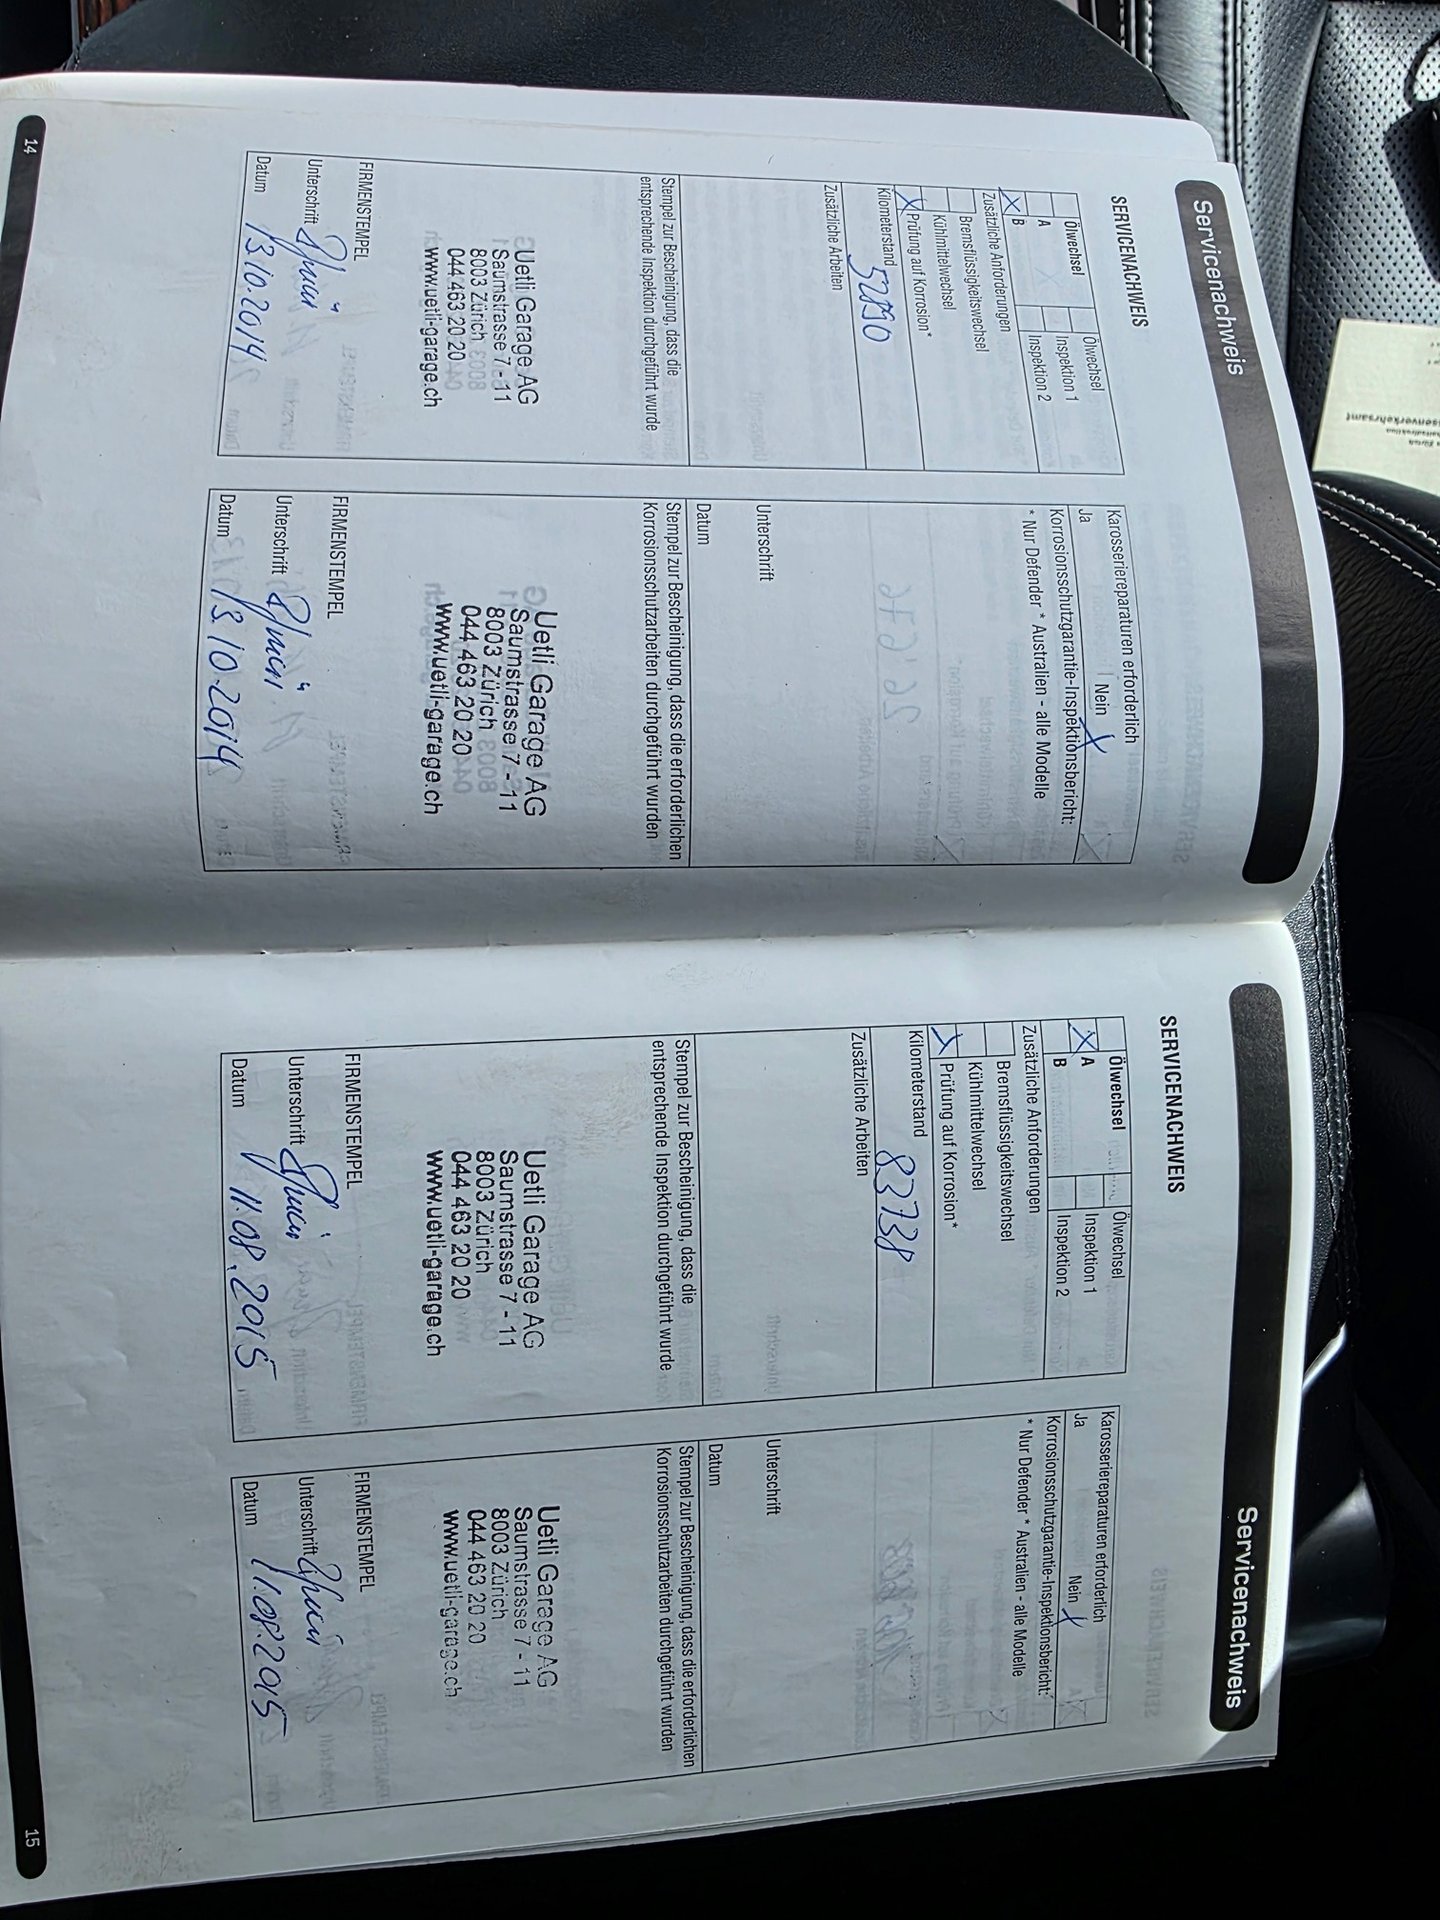 Servicenachweis
SERVICENACHWEIS
Ölwechsel
A
X B
Ölwechsel
Inspektion 1
Inspektion 2
Zusätzliche Anforderungen
Bremsflüssigkeitswechsel
Kühlmittelwechsel
X Prüfung auf Korrosion*
Kilometerstand
Zusätzliche Arbeiten
Stempel zur Bescheinigung, dass die
entsprechende Inspektion durchgeführt wurde
Uetli Garage AG
Saumstrasse 7 - 11
8003 Zürich
044 463 20 20
www.uetli-garage.ch
FIRMENSTEMPEL
Unterschrift
Datum 13.10.2014
Karosseriereparaturen erforderlich
Ja Nein X
Korrosionsschutzgarantie-Inspektionsbericht:
* Nur Defender * Australien - alle Modelle
Unterschrift
Datum
Stempel zur Bescheinigung, dass die erforderlichen
Korrosionsschutzarbeiten durchgeführt wurden
Uetli Garage AG
Saumstrasse 7 - 11
8003 Zürich
044 463 20 20
www.uetli-garage.ch
FIRMENSTEMPEL
Unterschrift
Datum 13.10.2014
14
Servicenachweis
SERVICENACHWEIS
Ölwechsel
X A
B
Ölwechsel
Inspektion 1
Inspektion 2
Zusätzliche Anforderungen
Bremsflüssigkeitswechsel
Kühlmittelwechsel
X Prüfung auf Korrosion*
Kilometerstand 83738
Zusätzliche Arbeiten
Stempel zur Bescheinigung, dass die
entsprechende Inspektion durchgeführt wurde
Uetli Garage AG
Saumstrasse 7 - 11
8003 Zürich
044 463 20 20
www.uetli-garage.ch
FIRMENSTEMPEL
Unterschrift
Datum 11.08.2015
Karosseriereparaturen erforderlich
Ja Nein X
Korrosionsschutzgarantie-Inspektionsbericht:
* Nur Defender * Australien - alle Modelle
Unterschrift
Datum
Stempel zur Bescheinigung, dass die erforderlichen
Korrosionsschutzarbeiten durchgeführt wurden
Uetli Garage AG
Saumstrasse 7 - 11
8003 Zürich
044 463 20 20
www.uetli-garage.ch
FIRMENSTEMPEL
Unterschrift
Datum 11.08.2015
15